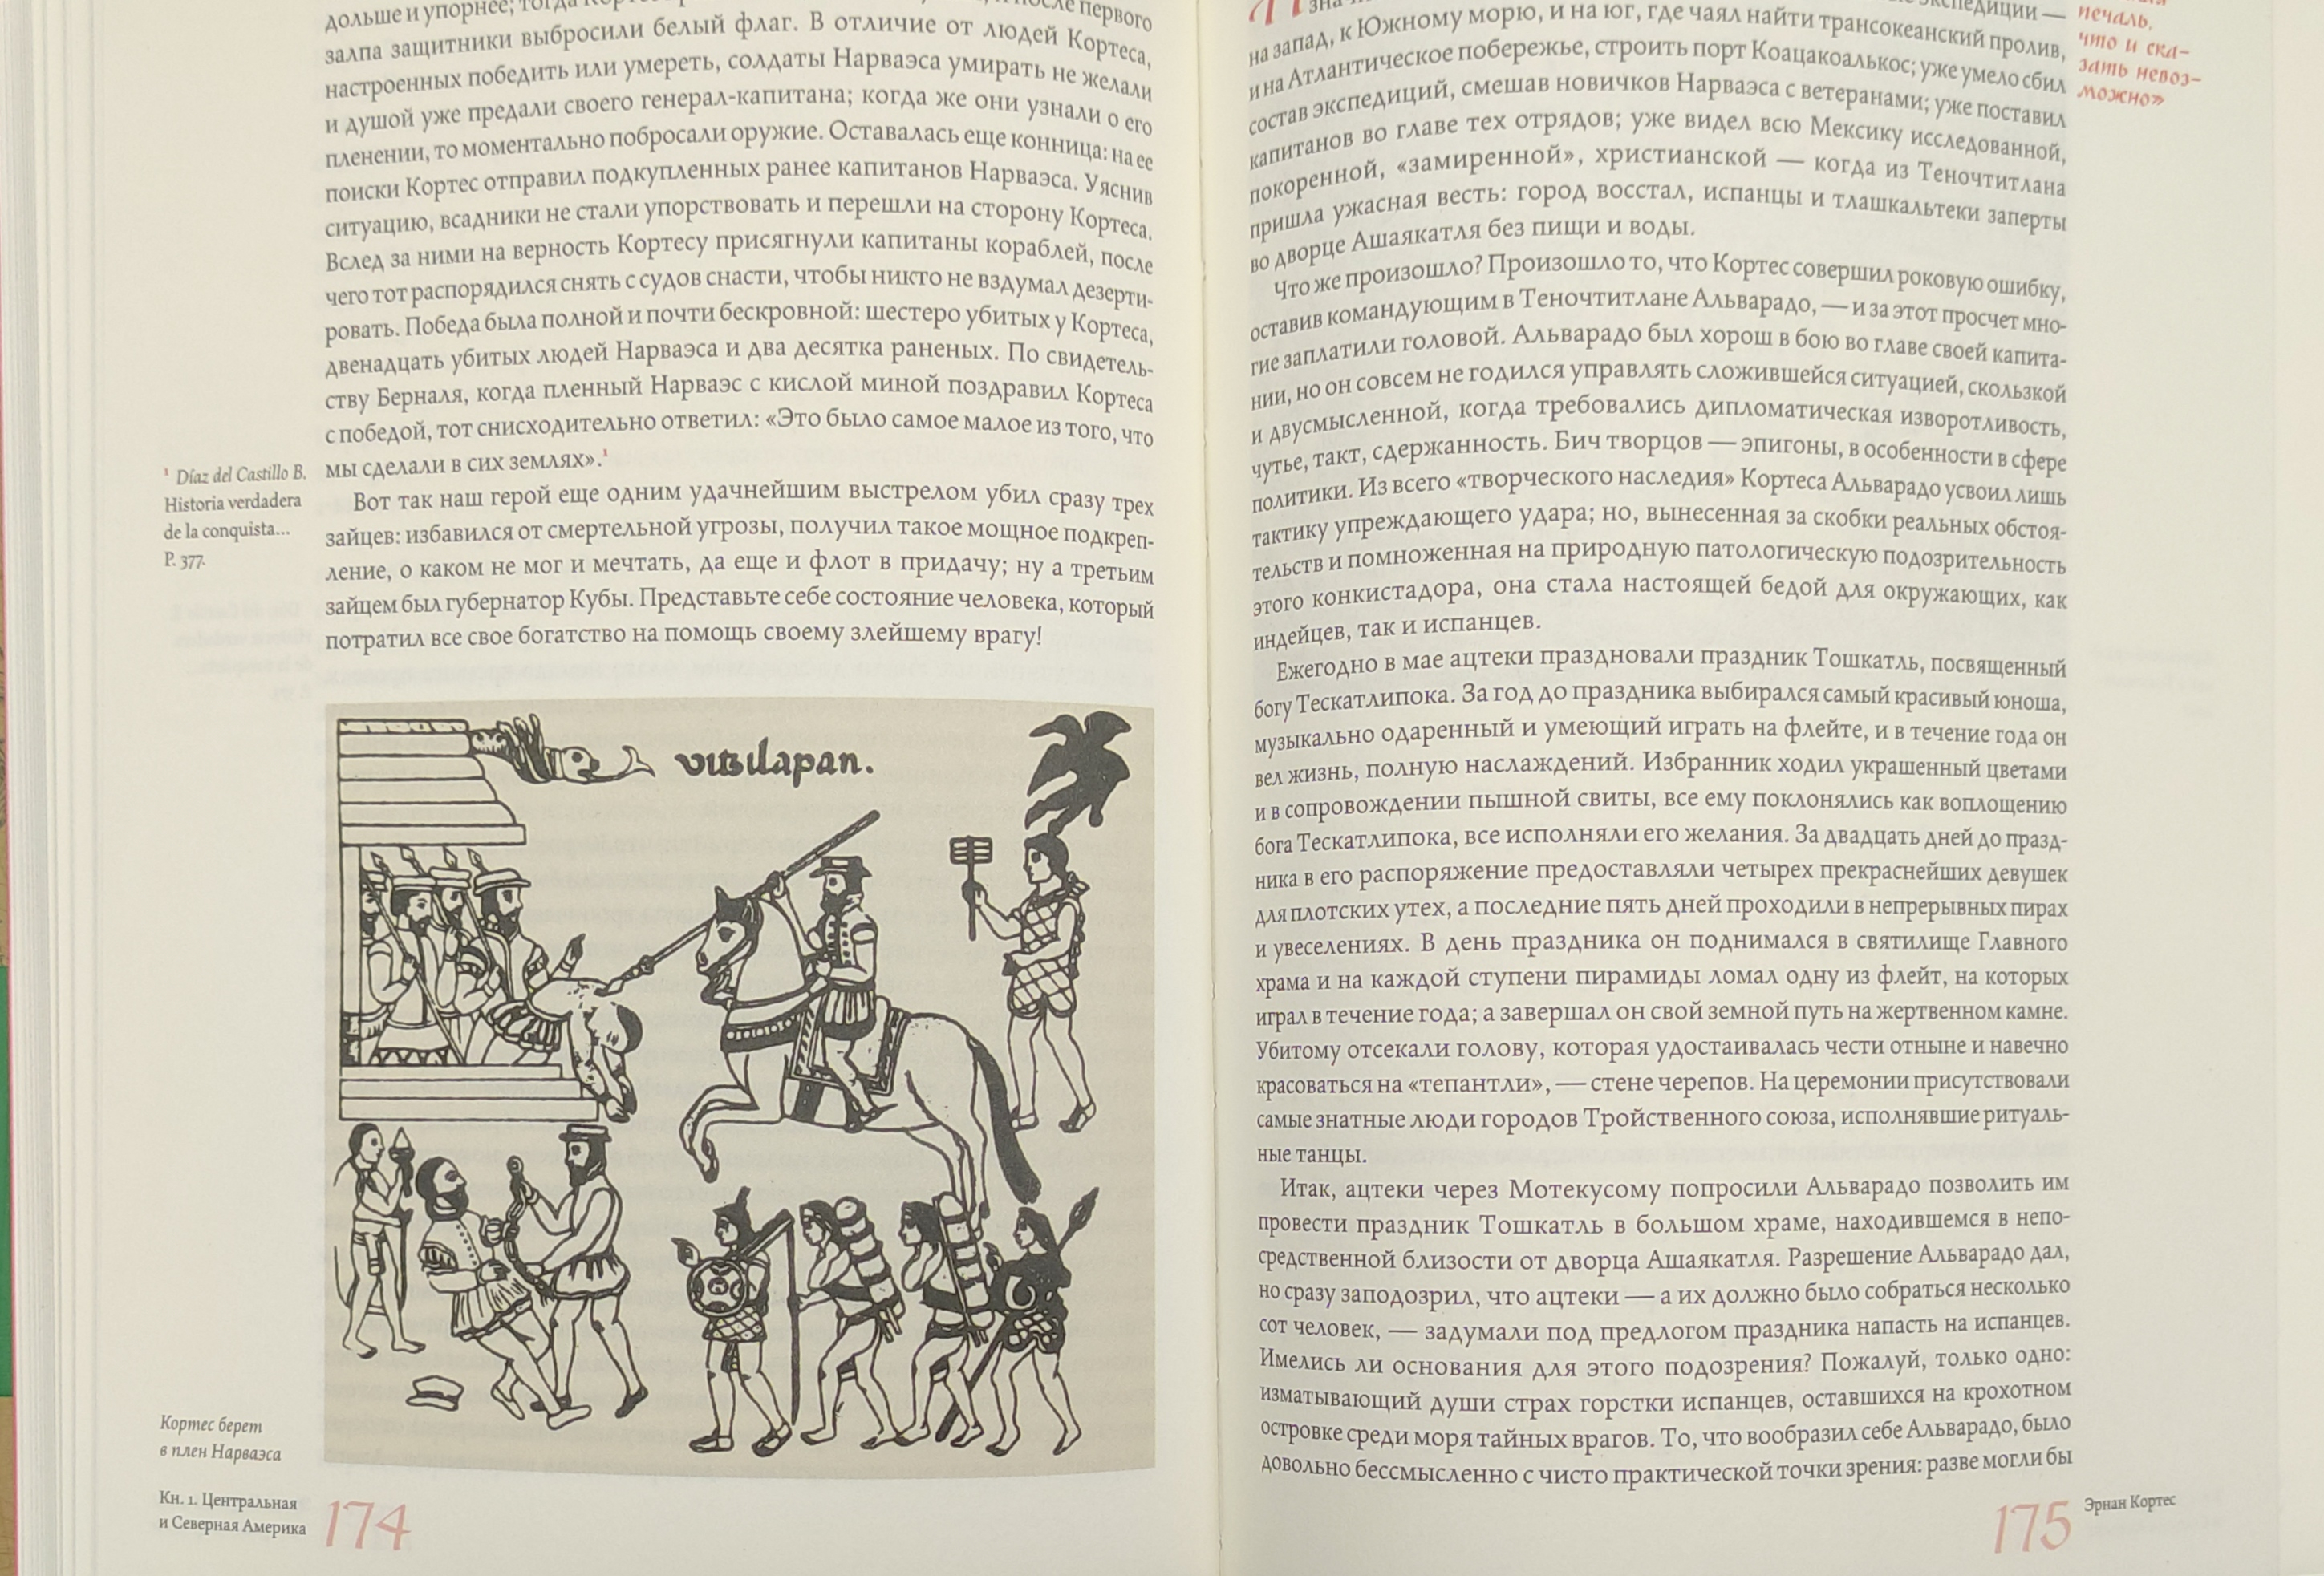 дольше и упорнее; тогда после первого
залпа защитники выбросили белый флаг. В отличие от людей Кортеса,
настроенных победить или умереть, солдаты Нарваэса умирать не желали
и душой уже предали своего генерал-капитана; когда же они узнали о его
пленении, то моментально побросали оружие. Оставалась еще конница: на ее
поиски Кортес отправил подкупленных ранее капитанов Нарваэса. Уяснив
ситуацию, всадники не стали упорствовать и перешли на сторону Кортеса.
Вслед за ними на верность Кортесу присягнули капитаны кораблей, после
чего тот распорядился снять с судов снасти, чтобы никто не вздумал дезерти-
ровать. Победа была полной и почти бескровной: шестеро убитых у Кортеса,
двенадцать убитых людей Нарваэса и два десятка раненых. По свидетель-
ству Берналя, когда пленный Нарваэс с кислой миной поздравил Кортеса
с победой, тот снисходительно ответил: «Это было самое малое из того, что
мы сделали в сих землях».¹
Вот так наш герой еще одним удачнейшим выстрелом убил сразу трех
зайцев: избавился от смертельной угрозы, получил такое мощное подкреп-
ление, о каком не мог и мечтать, да еще и флот в придачу; ну а третьим
зайцем был губернатор Кубы. Представьте себе состояние человека, который
потратил все свое богатство на помощь своему злейшему врагу!
¹ Díaz del Castillo B.
Historia verdadera
de la conquista...
P. 377.
vitzilapan.
Кортес берет
в плен Нарваэса
Кн. 1. Центральная
и Северная Америка
174
экспедиции —
на запад, к Южному морю, и на юг, где чаял найти трансокеанский пролив,
и на Атлантическое побережье, строить порт Коацакоалькос; уже умело сбил
состав экспедиций, смешав новичков Нарваэса с ветеранами; уже поставил
капитанов во главе тех отрядов; уже видел всю Мексику исследованной,
покоренной, «замиренной», христианской — когда из Теночтитлана
пришла ужасная весть: город восстал, испанцы и тлашкальтеки заперты
во дворце Ашаякатля без пищи и воды.
Что же произошло? Произошло то, что Кортес совершил роковую ошибку,
оставив командующим в Теночтитлане Альварадо, — и за этот просчет мно-
гие заплатили головой. Альварадо был хорош в бою во главе своей капита-
нии, но он совсем не годился управлять сложившейся ситуацией, скользкой
и двусмысленной, когда требовались дипломатическая изворотливость,
чутье, такт, сдержанность. Бич творцов — эпигоны, в особенности в сфере
политики. Из всего «творческого наследия» Кортеса Альварадо усвоил лишь
тактику упреждающего удара; но, вынесенная за скобки реальных обстоя-
тельств и помноженная на природную патологическую подозрительность
этого конкистадора, она стала настоящей бедой для окружающих, как
индейцев, так и испанцев.
Ежегодно в мае ацтеки праздновали праздник Тошкатль, посвященный
богу Тескатлипока. За год до праздника выбирался самый красивый юноша,
музыкально одаренный и умеющий играть на флейте, и в течение года он
вел жизнь, полную наслаждений. Избранник ходил украшенный цветами
и в сопровождении пышной свиты, все ему поклонялись как воплощению
бога Тескатлипока, все исполняли его желания. За двадцать дней до празд-
ника в его распоряжение предоставляли четырех прекраснейших девушек
для плотских утех, а последние пять дней проходили в непрерывных пирах
и увеселениях. В день праздника он поднимался в святилище Главного
храма и на каждой ступени пирамиды ломал одну из флейт, на которых
играл в течение года; а завершал он свой земной путь на жертвенном камне.
Убитому отсекали голову, которая удостаивалась чести отныне и навечно
красоваться на «тепантли», — стене черепов. На церемонии присутствовали
самые знатные люди городов Тройственного союза, исполнявшие ритуаль-
ные танцы.
Итак, ацтеки через Мотекусому попросили Альварадо позволить им
провести праздник Тошкатль в большом храме, находившемся в непо-
средственной близости от дворца Ашаякатля. Разрешение Альварадо дал,
но сразу заподозрил, что ацтеки — а их должно было собраться несколько
сот человек, — задумали под предлогом праздника напасть на испанцев.
Имелись ли основания для этого подозрения? Пожалуй, только одно:
изматывающий души страх горстки испанцев, оставшихся на крохотном
островке среди моря тайных врагов. То, что вообразил себе Альварадо, было
довольно бессмысленно с чисто практической точки зрения: разве могли бы
печаль,
что и ска-
зать невоз-
можно»
175
Эрнан Кортес